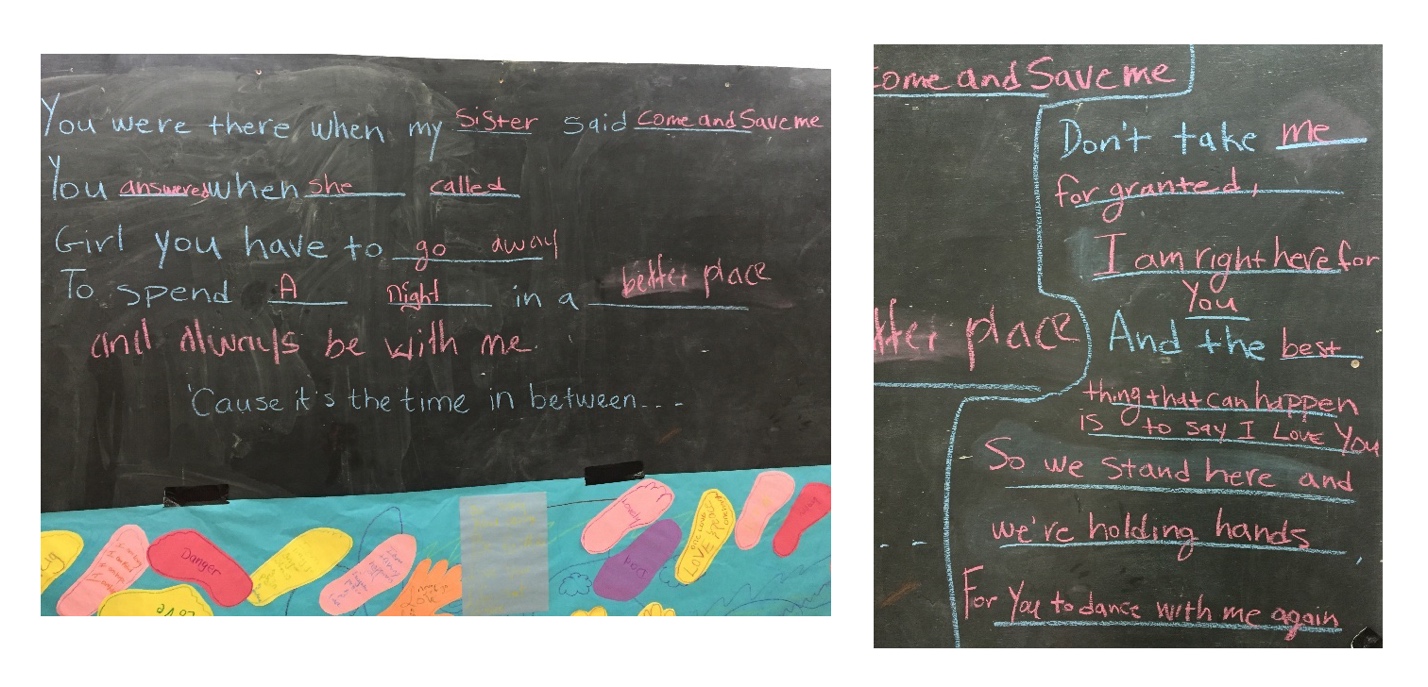 You were there when my Sister said Come and Save me
You answered when she called
Girl you have to go away
To spend A night in a better place
and always be with me.
'Cause it's the time in between...-
Danger
LOVE
Lonely
Hurt
LOVE
ome and Save me
Don't take me
for granted,
I am right here for
You
tter place
And the best
thing that can happen
is to say I Love You
So we stand here and
we're holding hands
For You to dance with me again